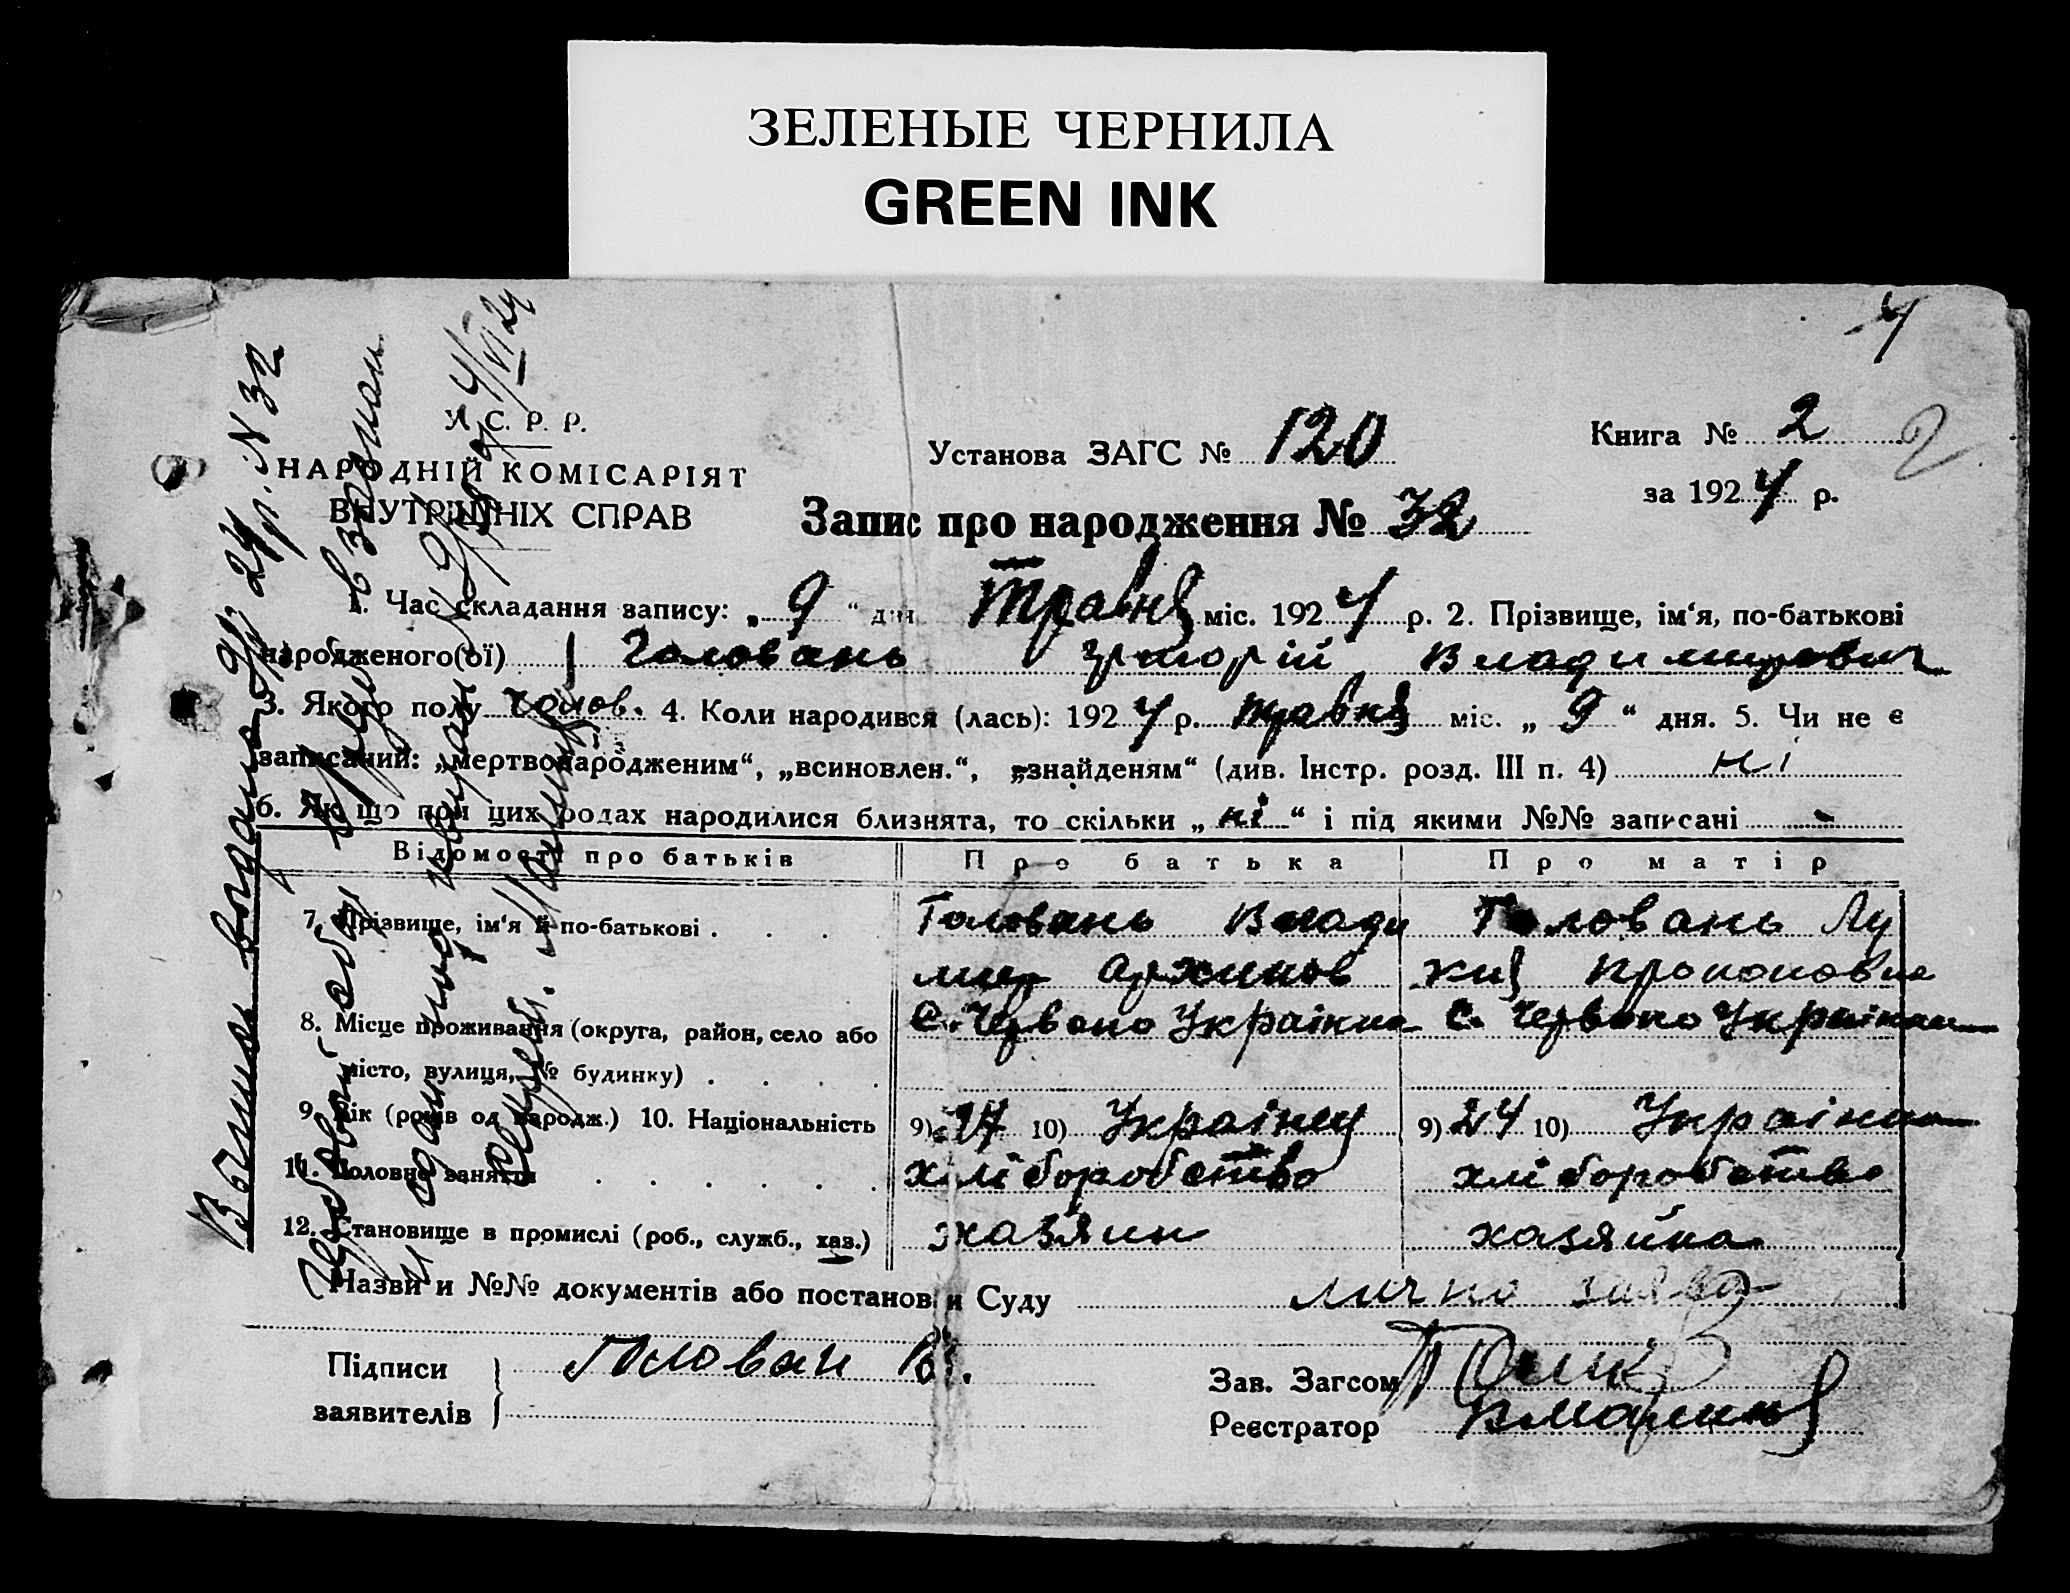 ЗЕЛЕНЫЕ ЧЕРНИЛА
GREEN INK
4
У. С. Р. Р.
НАРОДНІЙ КОМІСАРІЯТ
ВНУТРІШНІХ СПРАВ
Установа ЗАГС № 120
Книга № 2
2
за 1924 р.
Запис про народження № 32
1. Час складання запису: „ 9 “ дня Травня міс. 1924 р. 2. Прізвище, ім‘я, по-батькові
народженого(ої) Головань Григорій Владимирович
3. Якого полу чолов. 4. Коли народився (лась): 1924 р. травня міс. „ 9 “ дня. 5. Чи не є
записаний: „мертвонародженим“, „всиновлен.“, „знайденям“ (див. Інстр. розд. III п. 4) ні
6. Як що при цих родах народилися близнята, то скільки „ ні “ і під якими №№ записані -
Відомости про батьків Про батька Про матір
7. Прізвище, ім‘я й по-батькові . . . . Головань Влади Головань Лу
мир Архипов кия Прокоповна
8. Місце проживання (округа, район, село або С. Червоно Українка С. Червоно Українка
місто, вулиця, № будинку) . . . .
9. Вік (років од народж.) 10. Національність 9) 27 10) Українец 9) 24 10) Українка
11. Головне заняття . . . . . . хліборобство хліборобство
12. Становище в промислі (роб., служб., хаз.) хазяин хазяйка
Назви и №№ документів або постанови Суду лично заява
Підписи
заявителів } Головань В.
Зав. Загсом
Реєстратор
Выпись выдана 24 р. N 32
4/VI 24